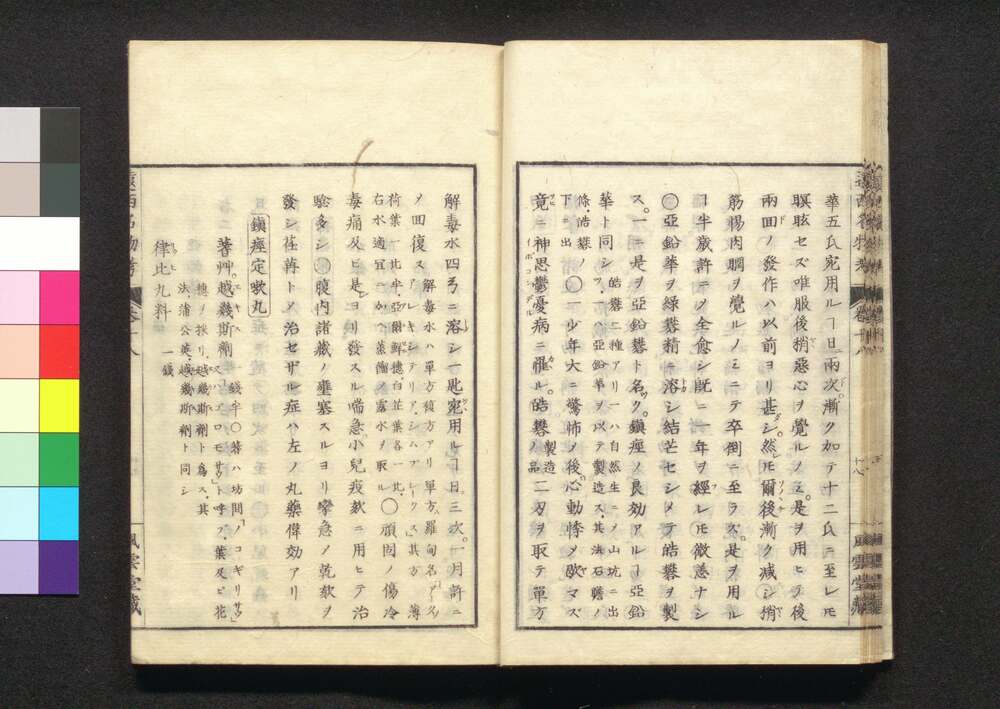 華五氏宛用ルヿ日両次漸ク加テ十二氏ニ至レ𪜈
瞑眩セズ唯服後稍惡心ヲ覺ルノミ是ヲ用ヒテ後
兩回ノ發作ハ以前ヨリ甚シ然𪜈爾後漸ク減シ稍
筋惕肉瞤ヲ覺ルノミニテ卒倒ニ至ラズ是ヲ用ル
ヿ半歳許ニメ全愈シ既ニ一年ヲ經レ𪜈微恙ナシ
○亞鉛華ヲ緑礬精ニ溶シ結芒セシメテ皓礬ヲ製
ス一ニ是ヲ亞鉛礬ト名ク鎮痙ノ良効アルヿ亞鉛
華ト同シ 皓礬二種アリ一ハ自然生ニメ山坑ニ出
フ一ハ亞鉛華ヲ以テ製造ス其法石膽ノ
條皓礬ノ
下ニ出
○一少年大ニ驚怖ノ後心動悸メ歇マズ
竟ニ神思鬱憂病ニ罹ル皓礬 製造
ノ品 二刃ヲ取テ單方
解毒水四弓ニ溶シ一匙宛用ルヿ日三次一月許ニ
メ回復ス 解毒水ハ單方複方アリ單方羅甸名
アレキシテリア、シムプレーキス其方 薄
荷葉一比半亞爾鮮穂白芷葉各一比
右水適宜ニ加ヘ蒸餾メ露水ヲ取ル ○頑固ノ傷冷
毒痛及ヒ是ヨリ發スル喘急小兒疫欬ニ用ヒテ治
驗多シ○腹内諸藏ノ壅塞スルヨリ攣急ノ乾欬ヲ
發シ荏苒トメ治セザル症ハ左ノ丸藥偉効アリ
鎮痙定欬丸
蓍艸越幾斯劑 一錢半○蓍ハ坊間ノコギリサウ
又ハゴロモサウト呼フ葉及ヒ花
穂ヲ採リ越幾斯劑ト爲ス其
法蒲公英越幾斯劑ト同シ
律比丸料 一錢
風雲堂藏